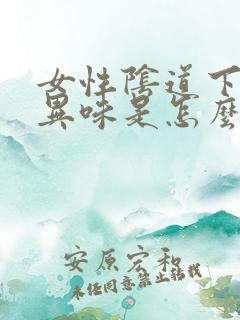 女性陰道下
異味是怎麼
安原宏和
未经同意禁止转载